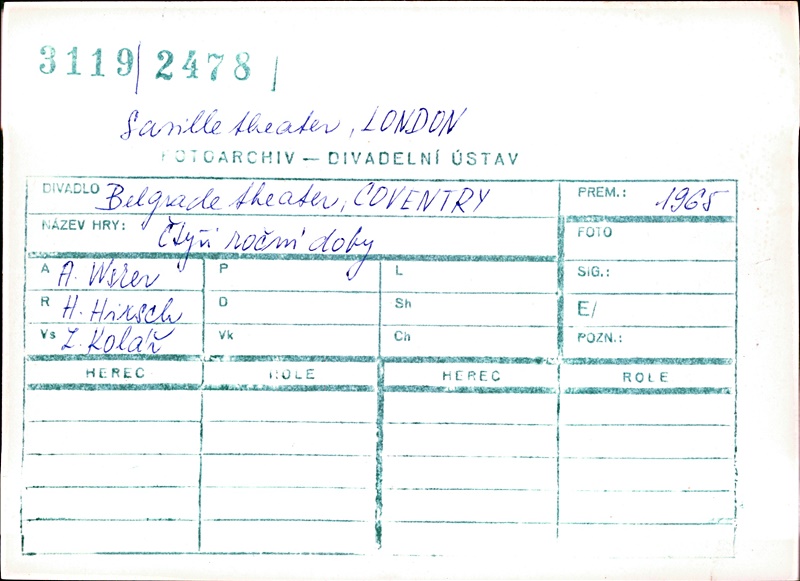 3119/2478/
Saville theater, LONDON
FOTOARCHIV — DIVADELNÍ ÚSTAV
DIVADLO Belgrade theater, COVENTRY
PREM.: 1965
NÁZEV HRY: Čtyři roční doby
FOTO
A A. Wsker P L SIG.:
R H. Hirsch D Sh E/
Vs Z. Kolář Vk Ch POZN.:
HEREC ROLE HEREC ROLE